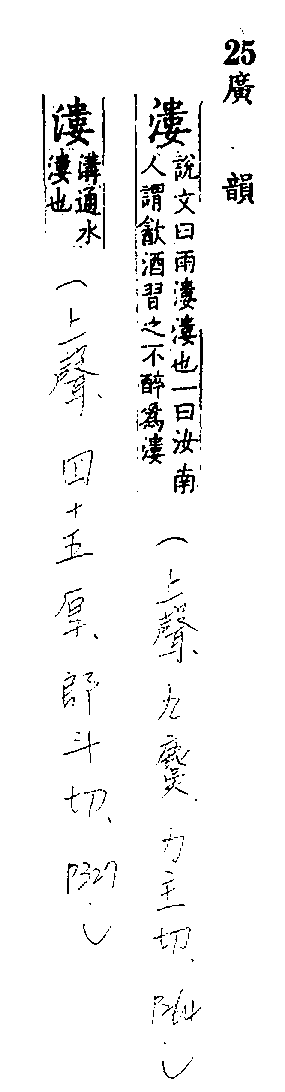 25
廣韻
漊 說文曰雨漊漊也一曰汝南
人謂飲酒習之不醉爲漊
(上聲、九麌、力主切、P264.)
漊 溝通水
漊也
(上聲、四十五厚、郎斗切、P327.)